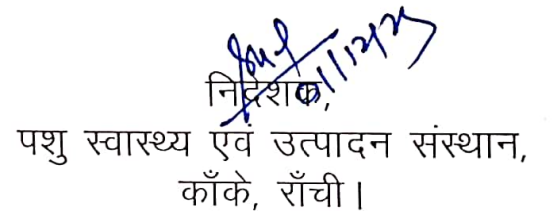 01/12/25
निदेशक,
पशु स्वास्थ्य एवं उत्पादन संस्थान,
काँके, राँची।